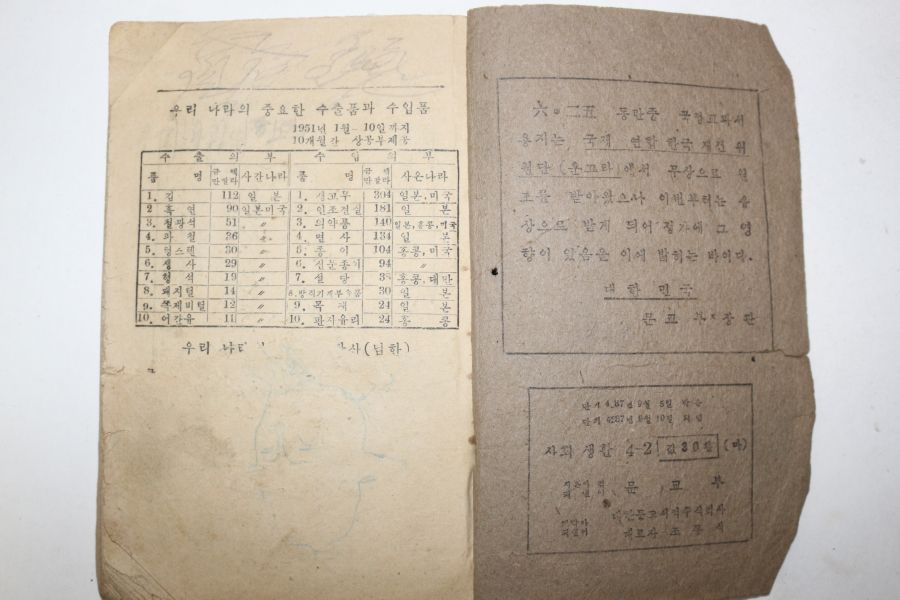 우리 나라의 중요한 수출품과 수입품
1951년 1월―10일까지
10개월간 상공부제공
수 출 의 부 수 입 의 부
품 명 금 액 만딸라 사간나라 품 명 금 액 만딸라 사온나라
1. 김 112 일 본 1. 생고무 304 일본, 미국
2 흑 연 90 일본미국 2. 인조견실 181 일 본
3. 철광석 51 〃 3. 의약품 140 일본, 홍콩, 미국
4. 36 〃 4. 면 사 134 일 본
5. 텅스텐 30 〃 5. 종 이 104 홍콩, 미국
6. 생 사 29 〃 6. 신문종이 94 〃
7. 19 〃 7. 설 탕 38 홍콩, 대만
8. 돼지털 14 〃 8. 30 일 본
9. 족제비털 12 〃 9. 목 재 24 일 본
10. 어간유 11 〃 10. 판지유리 24 홍 콩
우리 나 (남한)
六·二五 동란중 국정교과서
용지는 국제 연합 한국 재건 위
원단(운끄라)에서 무상으로 원
조를 받아왔으나 이번부터는 유
상으로 받게 되어 정가에 그 영
향이 있음을 이에 밝히는 바이다.
대한민국
문교부 장관
87년 9월 5일 박음
단기 4287년 9월 10일 펴냄
사회 생활 4-2 값 (마)
문 교 부
대한
대표자